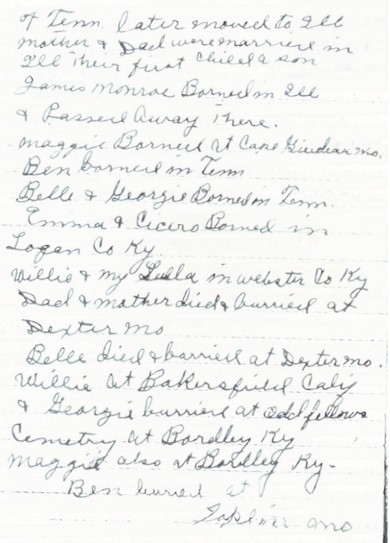 of Tenn later moved to Ill
mother & Dad were married in
Ill Their first child a son
James Monroe Borned in Ill
& Passed Away There.
maggie Borned at Cape Giredear mo.
Ben borned in Tenn
Belle & Georgie Borned in Tenn.
Emma & Cicero Borned in
Logan Co Ky
Willie & my Lulla in webster Co Ky
Dad & mother died & burried at
Dexter mo
Belle died & burried at Dexter mo.
Willie at Bakersfield Calif
& Georgie burried at odd fellows
Cemetry at Bordley Ky
maggie also at Bordley Ky.
Ben buried at
mo